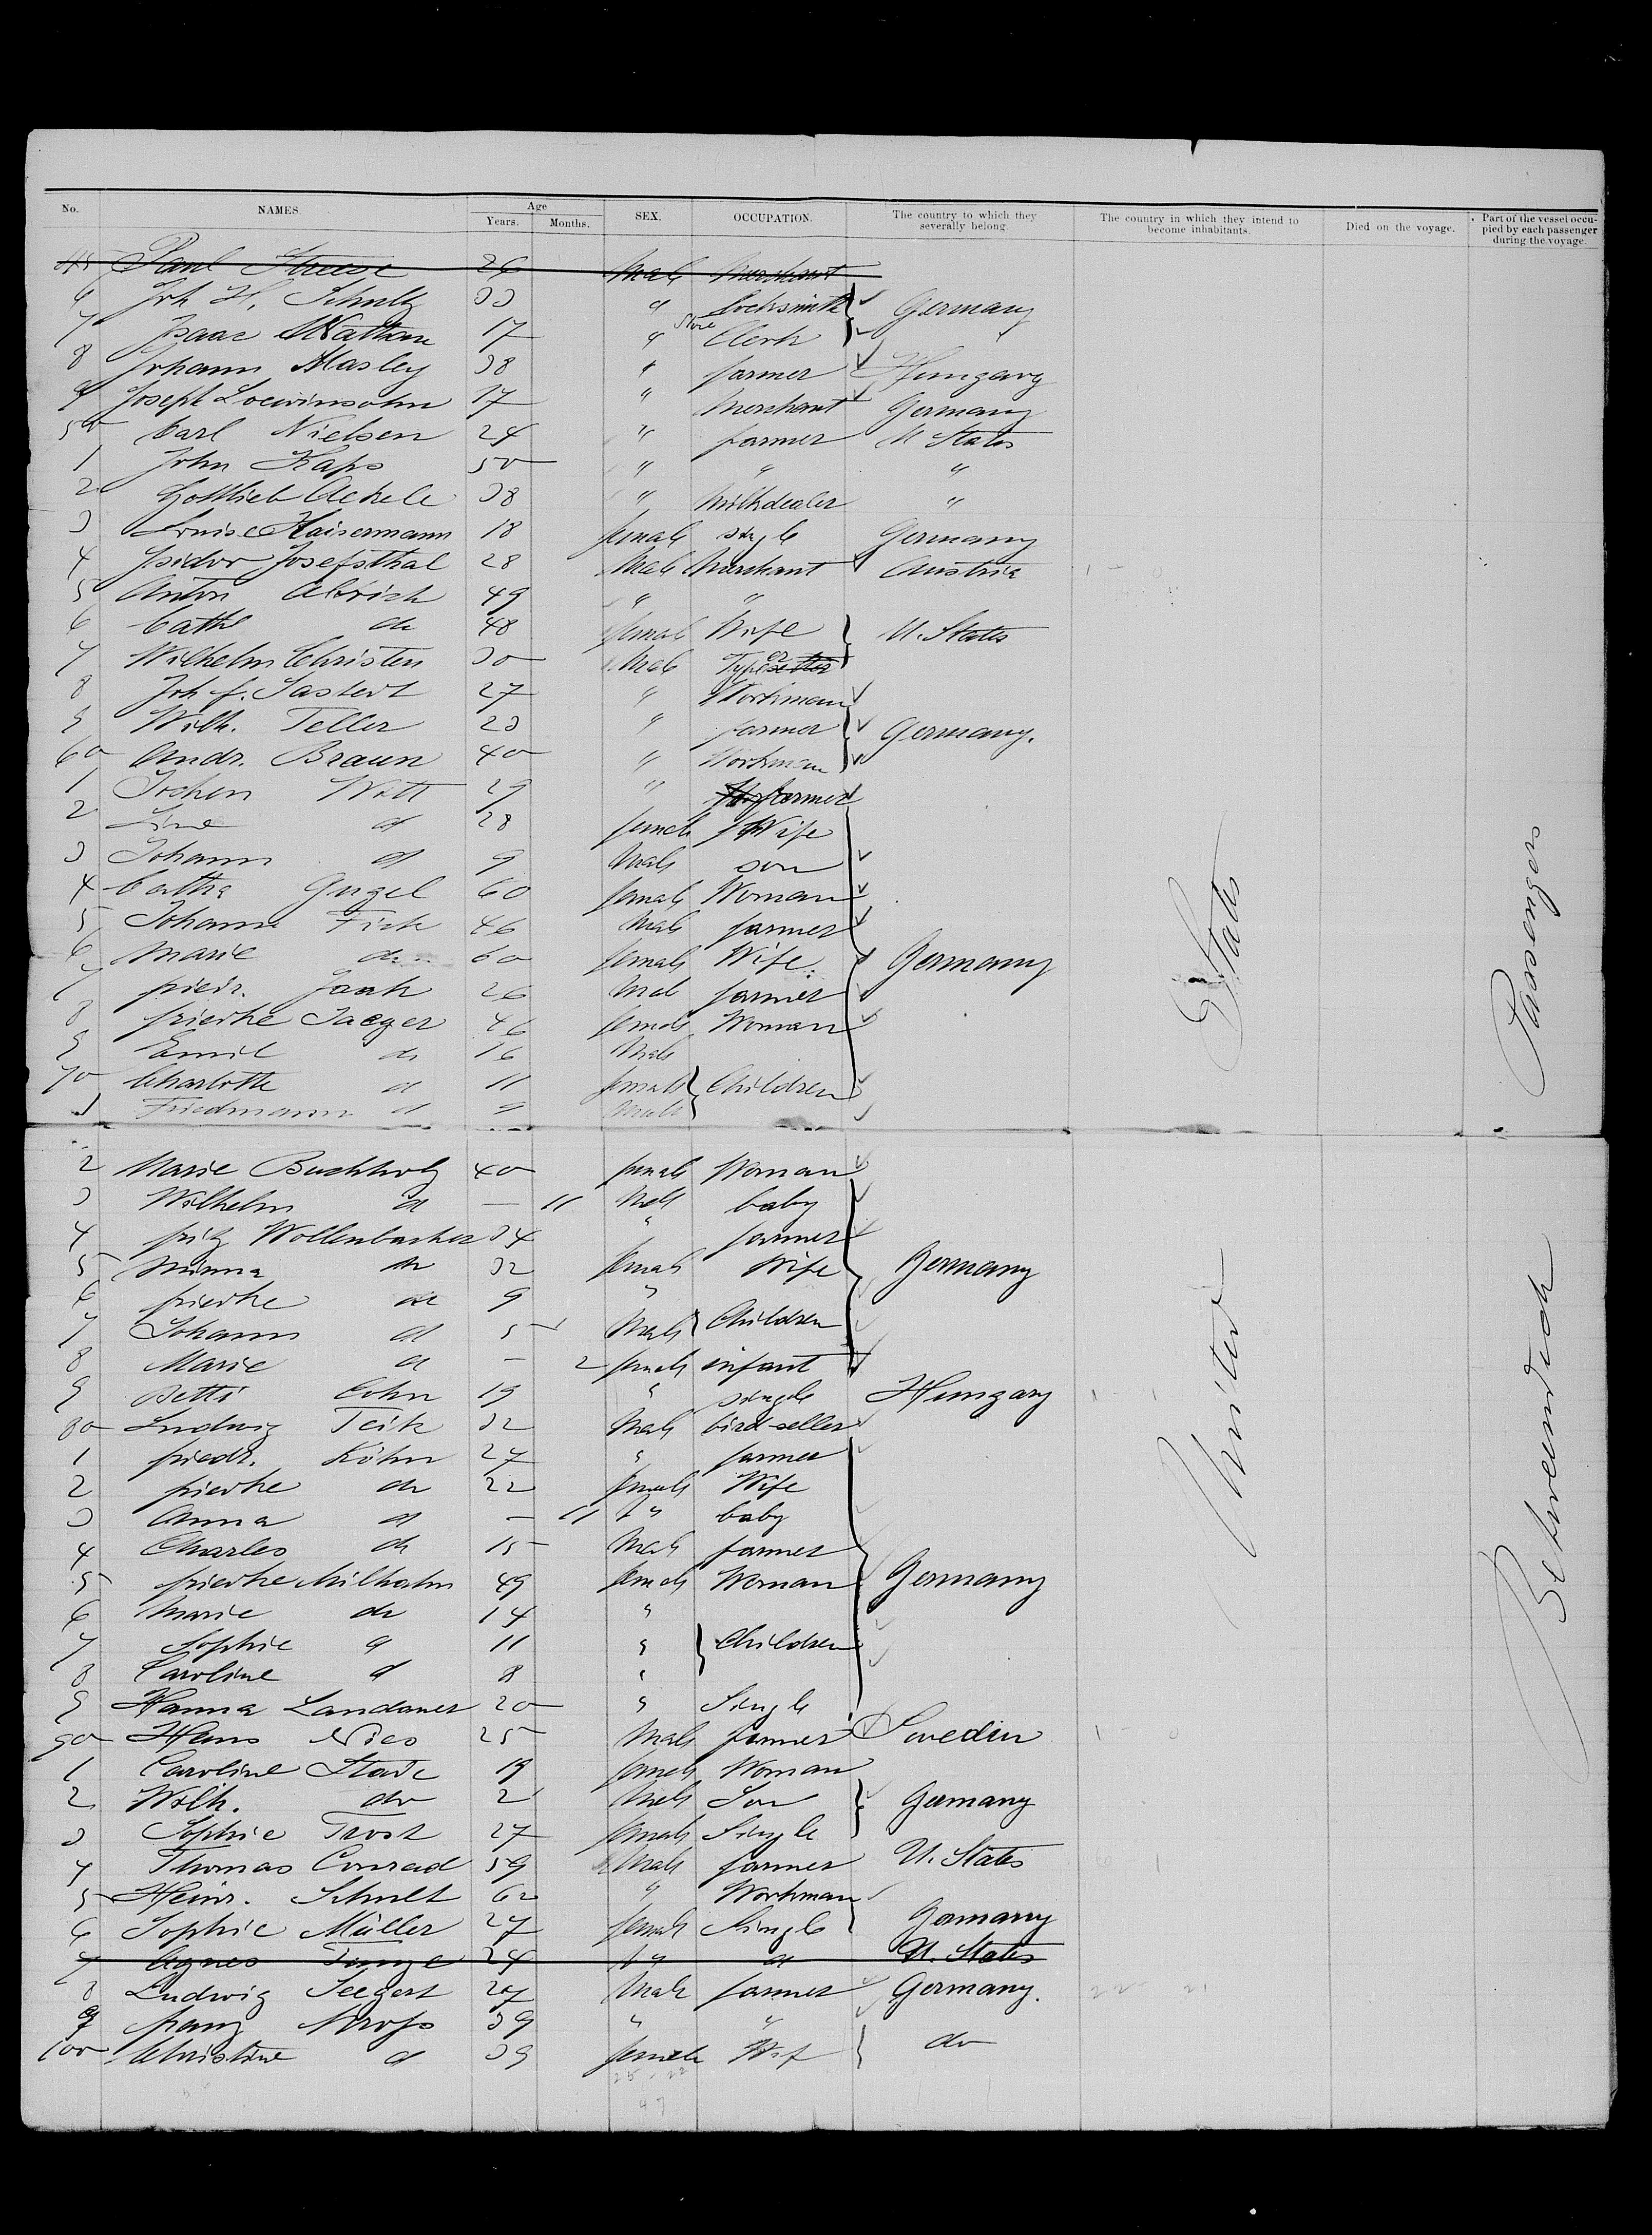 No. NAMES. Age Years. Months. SEX. OCCUPATION. The country to which they severally belong. The country in which they intend to become inhabitants. Died on the voyage. Part of the vessel occupied by each passenger during the voyage.
45 Paul 26 Male Merchant
6 Joh H. Schultz 33 " Locksmith Germany
7 Isaac Nathan 17 " Store Clerk "
8 Johann Masley 38 " farmer Hungary
9 Joseph Loewinsohn 17 " Merchant Germany
50 Carl Nielsen 24 " farmer U States
1 John Kaps 50 " " "
2 Gottlieb 38 " Milkdealer "
3 Louise Kaisermann 18 female single Germany
4 Isidor Josefsthal 28 Male Merchant Austria
5 Anton 49 " "
6 Cath do 48 female Wife U. States
7 Wilhelm Christen 30 Male
8 Joh f. Sastert 27 " Workman
9 Wilh. Teller 23 " farmer Germany.
60 Andr. Braun 40 " Workman
1 Jochen Witt 29 " farmer
2 Line d 28 female Wife
3 Johann d 9 Male son
4 Cathr 60 female Woman
5 Johann Fick 46 Male farmer
6 Marie do 60 female Wife. Germany
7 friedr. Jaak 26 Male farmer
8 frierke Jaeger 46 female Woman
9 Emil do 16 Male
70 Charlotte d 11 female Children
1 Friedmann d 9 Male
2 Marie Buchholz 40 female Woman
3 Wilhelm d — 11 Male baby
4 fritz Wollenbacher 34 " farmer
5 Minna do 32 female Wife Germany
6 frierke do 9 "
7 Johann d 5 Male Children
8 Marie d — 2 female infant
9 Betti Cohn 19 " single Hungary
80 Ludwig Teik 32 Male bird-seller
1 friedr. Köhn 27 " farmer
2 frierke do 22 female Wife
3 Anna d — 11 " baby
4 Charles do 15 Male farmer
5 frierke Milhahn 49 female Woman Germany
6 Marie do 14 "
7 Sophie d 11 " Children
8 Caroline d 8 "
9 Hanna Landauer 20 " Single
90 Hans Nies 25 Male farmer Sweden
1 Caroline Stade 19 female Woman
2 Wilh. do 2 Male Son Germany
3 Sophie Trost 27 female Single
4 Thomas Conrad 59 Male farmer U. States
5 Heinr. Schult 62 " Workman
6 Sophie Müller 27 female Single Germany
7 Agnes 24 " d U. States
8 Ludwig Seegert 27 Male farmer Germany.
9 franz 39 " "
100 Christine d 39 female Wif do
United States
Betweendeck Passengers